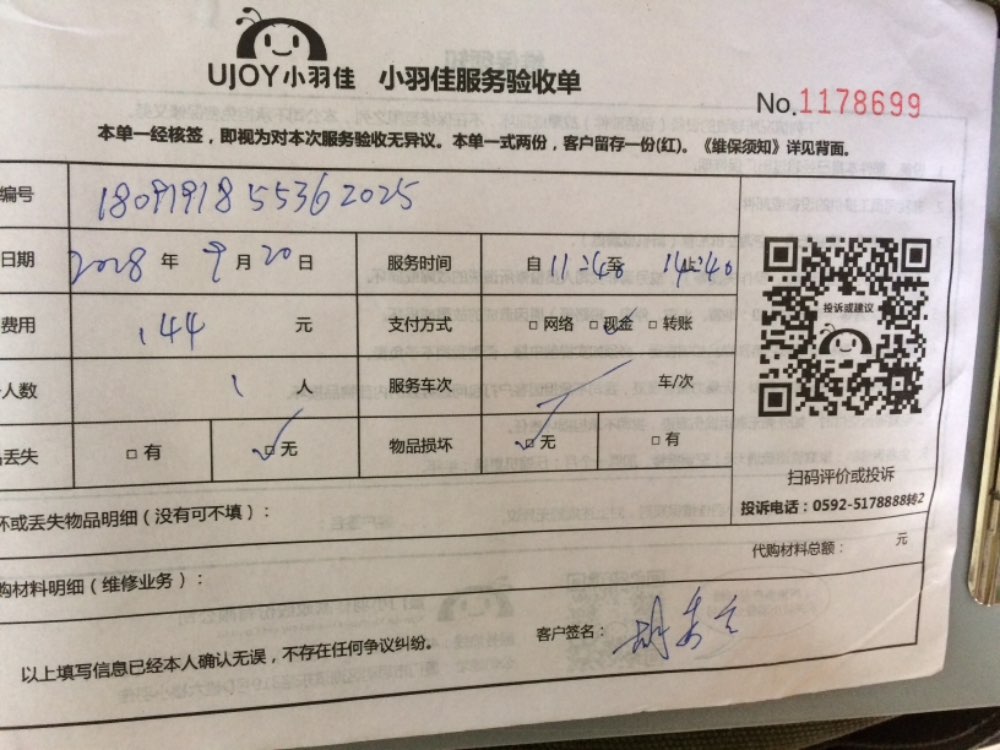 UJOY小羽佳 小羽佳服务验收单
No.1178699
本单一经核签，即视为对本次服务验收无异议。本单一式两份，客户留存一份(红)。《维保须知》详见背面。
编号 1809191855362025
日期 2018 年 9 月 20 日 服务时间 自 11:40 至 14:40 止
费用 144 元 支付方式 □网络 □现金 □转账
人数 1 人 服务车次 车/次
丢失 □有 □无 物品损坏 □无 □有
投诉或建议
扫码评价或投诉
投诉电话：0592-5178888转2
坏或丢失物品明细（没有可不填）：
代购材料总额： 元
购材料明细（维修业务）：
客户签名：
以上填写信息已经本人确认无误，不存在任何争议纠纷。